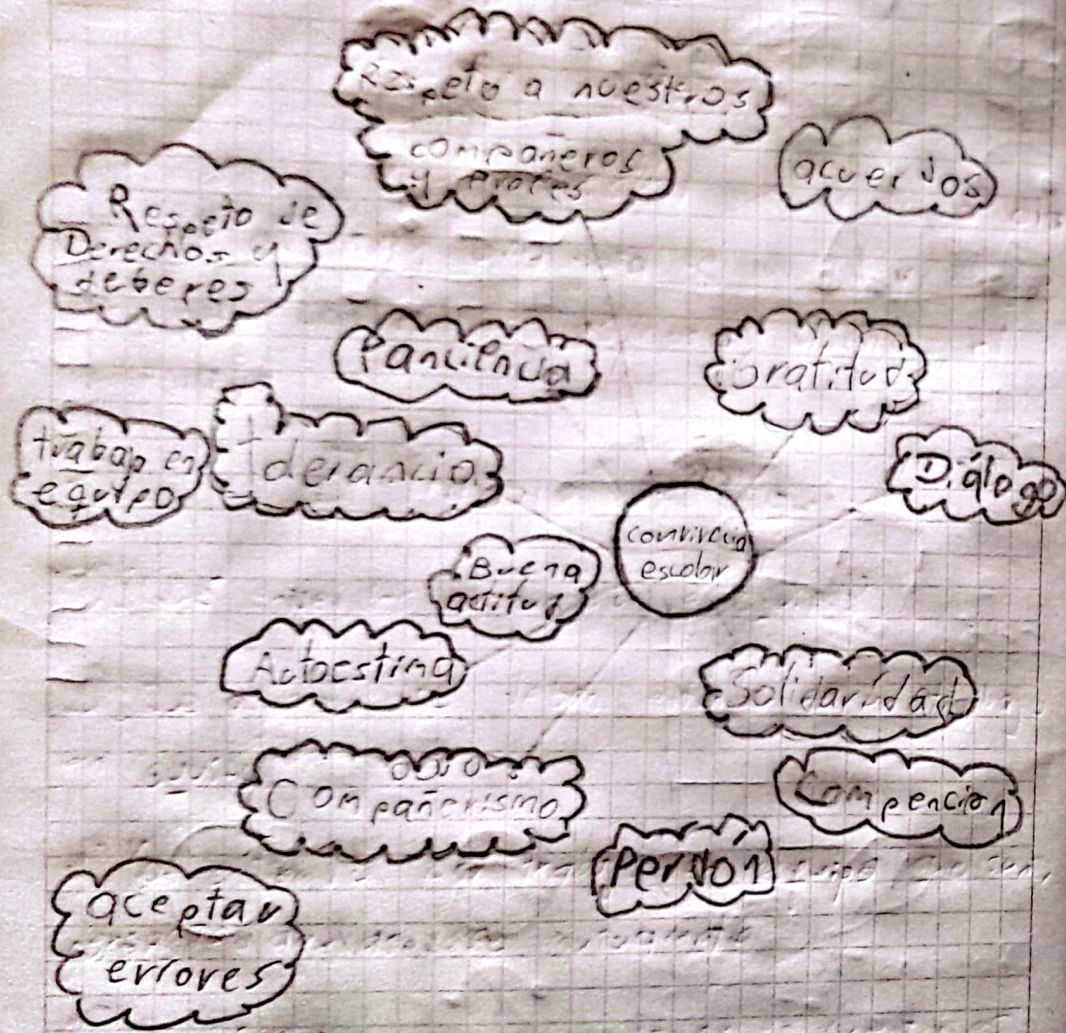 Respeto a nuestros
compañeros
y profes
acuerdos
Respeto de
Derechos y
deberes
Panciencia
Gratitud
trabajo en
equipo
Tolerancia
Diálogo
convivencia
escolar
Buena
actitud
Autoestima
Solidaridad
Compañerismo
Compencion
Perdón
aceptar
errores